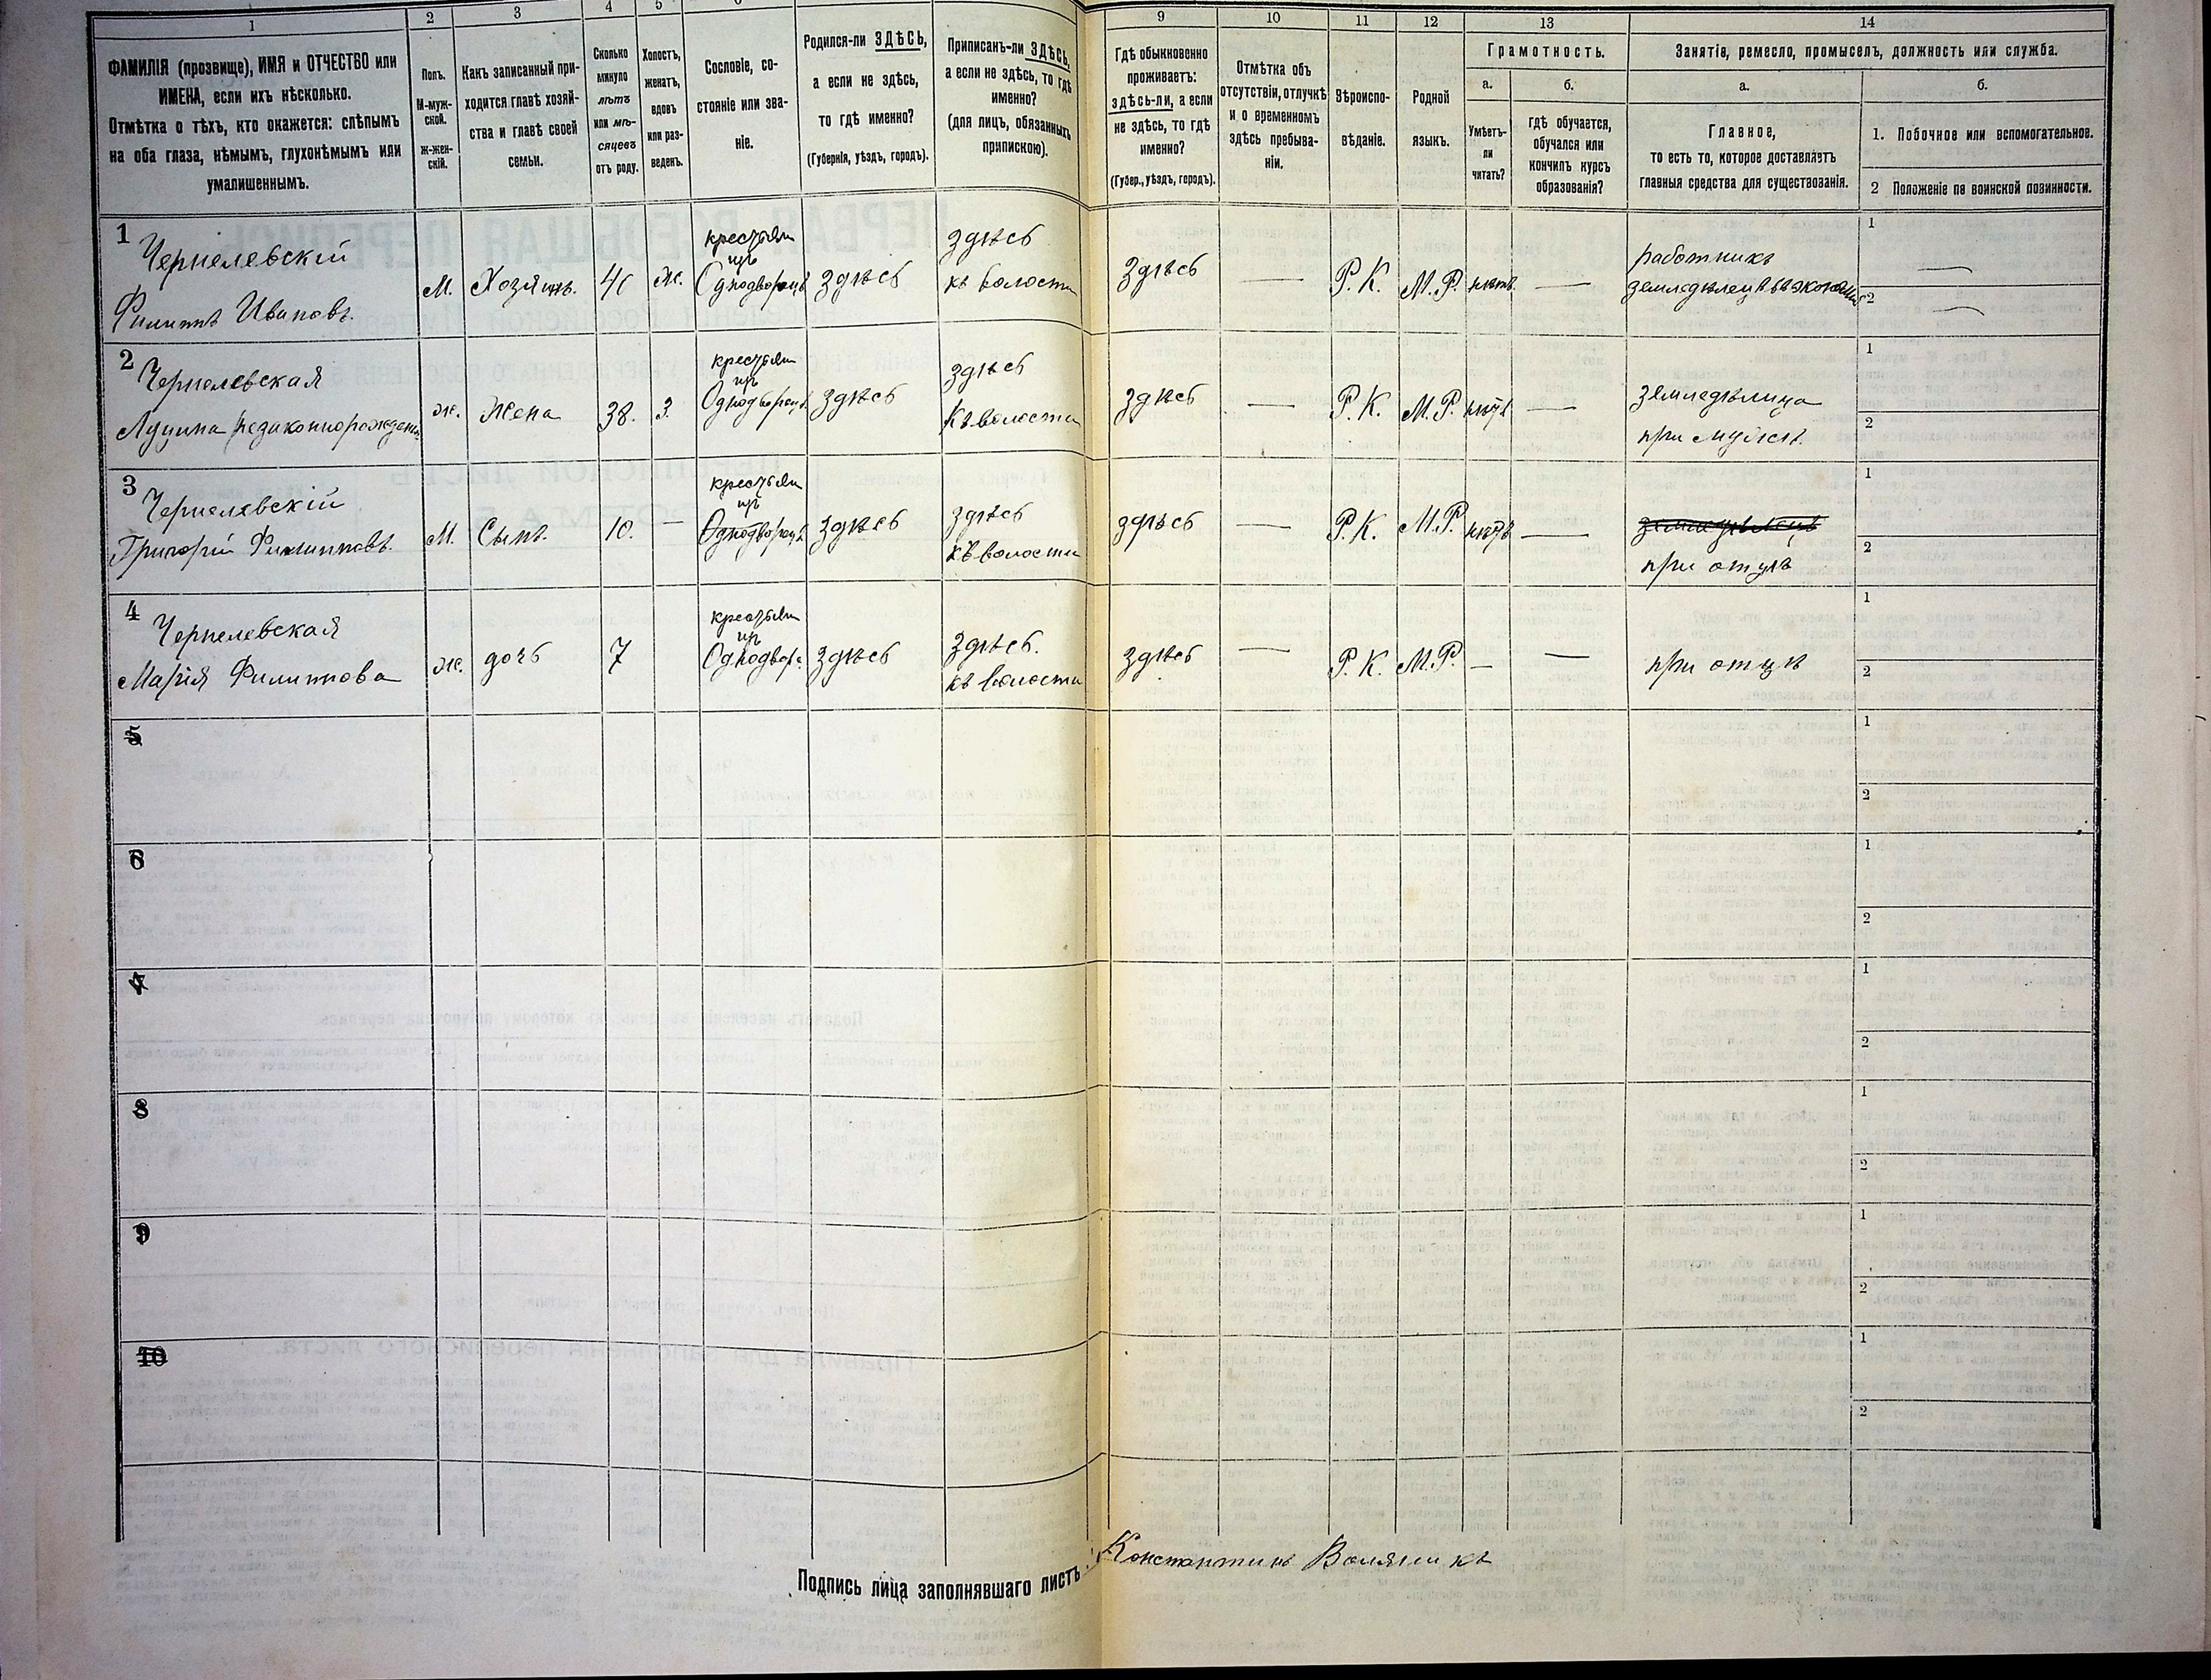 1 2 3 4 5 6 9 10 11 12 13 14
ФАМИЛІЯ (прозвище), ИМЯ и ОТЧЕСТВО или
ИМЕНА, если ихъ нѣсколько.
Отмѣтка о тѣхъ, кто окажется: слѣпымъ
на оба глаза, нѣмымъ, глухонѣмымъ или
умалишеннымъ.
Полъ.
М-муж-
ской.
ж-жен-
скій.
Какъ записанный при-
ходится главѣ хозяй-
ства и главѣ своей
семьи.
Сколько
минуло
лѣтъ
или мѣ-
сяцевъ
отъ роду.
Холостъ,
женатъ,
вдовъ
или раз-
веденъ.
Сословіе, со-
стояніе или зва-
ніе.
Родился-ли ЗДѢСЬ,
а если не здѣсь,
то гдѣ именно?
(Губернія, уѣздъ, городъ).
Приписанъ-ли ЗДѢСЬ,
а если не здѣсь, то гдѣ
именно?
(для лицъ, обязанныхъ
припискою).
Гдѣ обыкновенно
проживаетъ:
здѣсь-ли, а если
не здѣсь, то гдѣ
именно?
(Губер., уѣздъ, городъ).
Отмѣтка объ
отсутствіи, отлучкѣ
и о временномъ
здѣсь пребыва-
ніи.
Вѣроиспо-
вѣданіе.
Родной
языкъ.
Грамотность.
а.
Умѣетъ-
ли
читать?
б.
гдѣ обучается,
обучался или
кончилъ курсъ
образованія?
Занятіе, ремесло, промыселъ, должность или служба.
а.
Главное,
то есть то, которое доставляетъ
главныя средства для существованія.
б.
1. Побочное или вспомогательное.
2 Положеніе по воинской повинности.
1 Чернелевскій
Филиппъ Ивановъ.
М. Хозяинъ. 40 ж.
крестьян
изъ
Однодворцевъ
здѣсь
здѣсь
къ волости
здѣсь — Р. К. М. Р. нѣтъ —
работникъ
земледѣлецъ въ экономіи
1 —
2 —
2 Чернелевская
Луцина незаконнорожден
ж. жена 38. З.
крестьян
изъ
Однодворцевъ
здѣсь
здѣсь
къ волости
здѣсь — Р. К. М. Р. нѣтъ —
земледѣлица
при мужѣ.
1
2
3 Чернелевскій
Григорій Филипповъ.
М. Сынъ. 10. —
крестьян
изъ
Однодворцевъ
здѣсь
здѣсь
къ волости
здѣсь — Р. К. М. Р. нѣтъ —
земледѣлецъ
при отцѣ
1
2
4 Чернелевская
Марія Филиппова
ж. дочь 7
крестьян
изъ
Однодвор.
здѣсь
здѣсь.
къ волости
здѣсь — Р. К. М. Р. — —
при отцѣ
1
2
5
1
2
6
1
2
7
1
2
8
1
2
9
1
2
10
1
2
Подпись лица заполнявшаго листъ: Константинъ